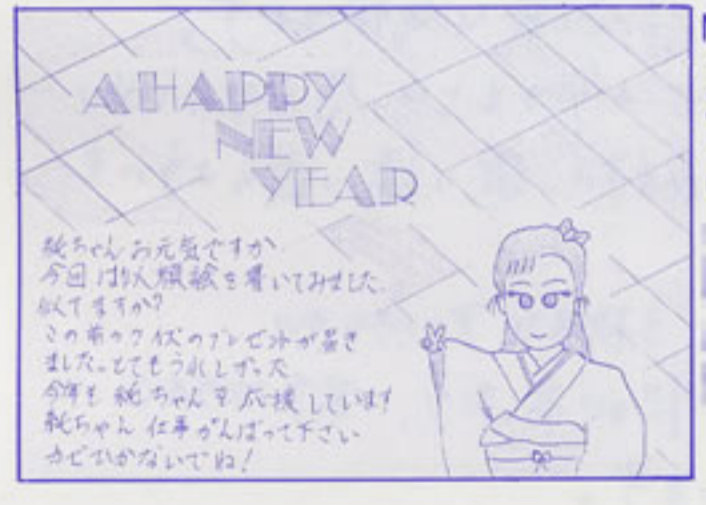 A HAPPY
NEW
YEAR
純ちゃんお元気ですか
今回は似顔絵を書いてみました
似てますか?
この前のクイズのプレゼントが届き
ました。とてもうれしかった
今年も純ちゃんを応援しています
純ちゃん仕事がんばって下さい
カゼひかないでね!